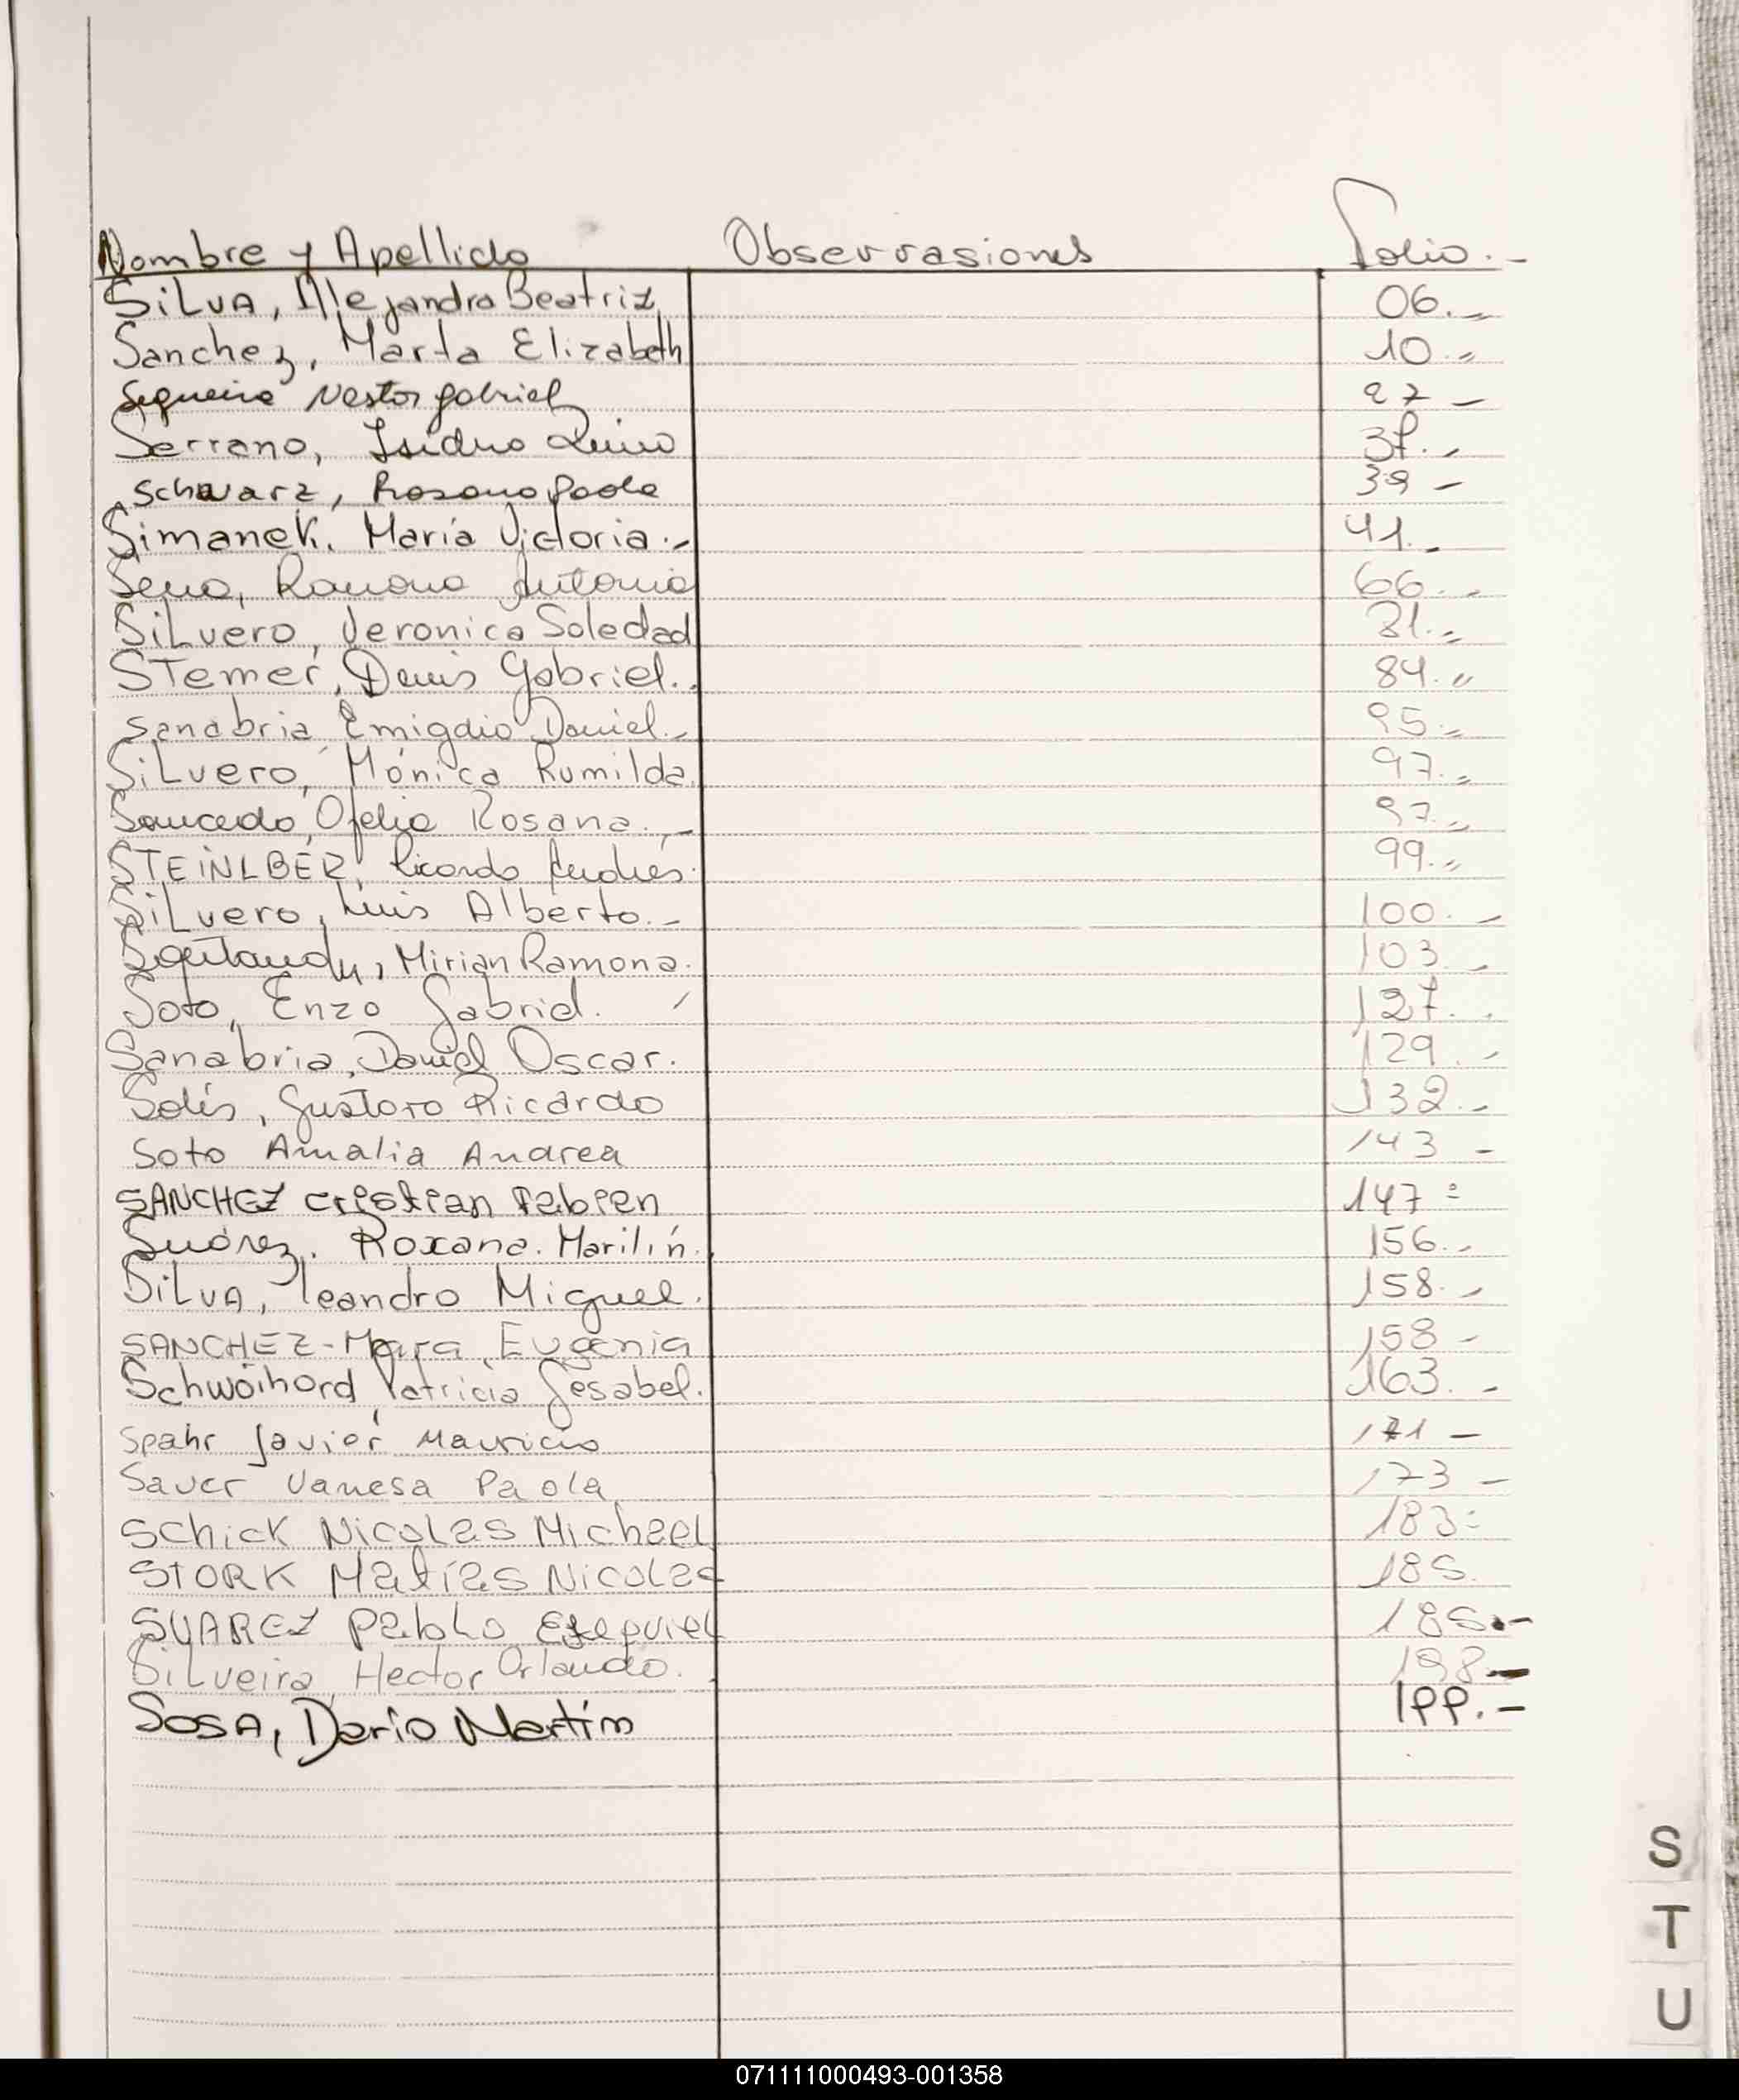 Nombre y Apellido Observasiones Folio.-
SiLVA, Alejandra Beatriz 06.-
Sanchez, Marta Elizabeth 10.-
Sequeira Nestor Gabriel 27 -
Serrano, Isidro 37.-
Schwarz, Rosana Paola 39 -
Simanek. María Victoria.- 41.-
Sena, Ramona Antonia 66.-
SiLvero, Veronica Soledad 81.-
STemer, Denis Gabriel. 84.-
Sanabria Emigdio Daniel.- 95.-
SiLvero, Mónica Rumilda. 97.-
Saucedo, Ofelia Rosana.- 97.-
STEiNLBER, Ricardo Andrés. 99.-
SiLvero, Luis Alberto.- 100.-
Mirian Ramona. 103.-
Soto, Enzo Gabriel. 127.-
Sanabria, Daniel Oscar. 129.-
Solís, Gustavo Ricardo 132.-
Soto Amalia Andrea 143 -
SANCHEZ cristian Fabian 147 =
Suárez. Roxana. Marilín. 156.-
SiLVA, leandro Miguel. 158.-
SANCHEZ-Mara Eugenia 158 -
Schwoihord Patricia Jesabel. 163.-
Spahr Javier Mauricio 171 -
Sauer Vanesa Paola 173 -
SchicK NicoLas Michael 183=
STORK Matías Nicolas 185.
SUAREZ PabLo Ezequiel 185.-
SiLveira, Hector Orlando. 198.-
SOSA, Dario Martín 199.-
S
T
U
071111000493-001358